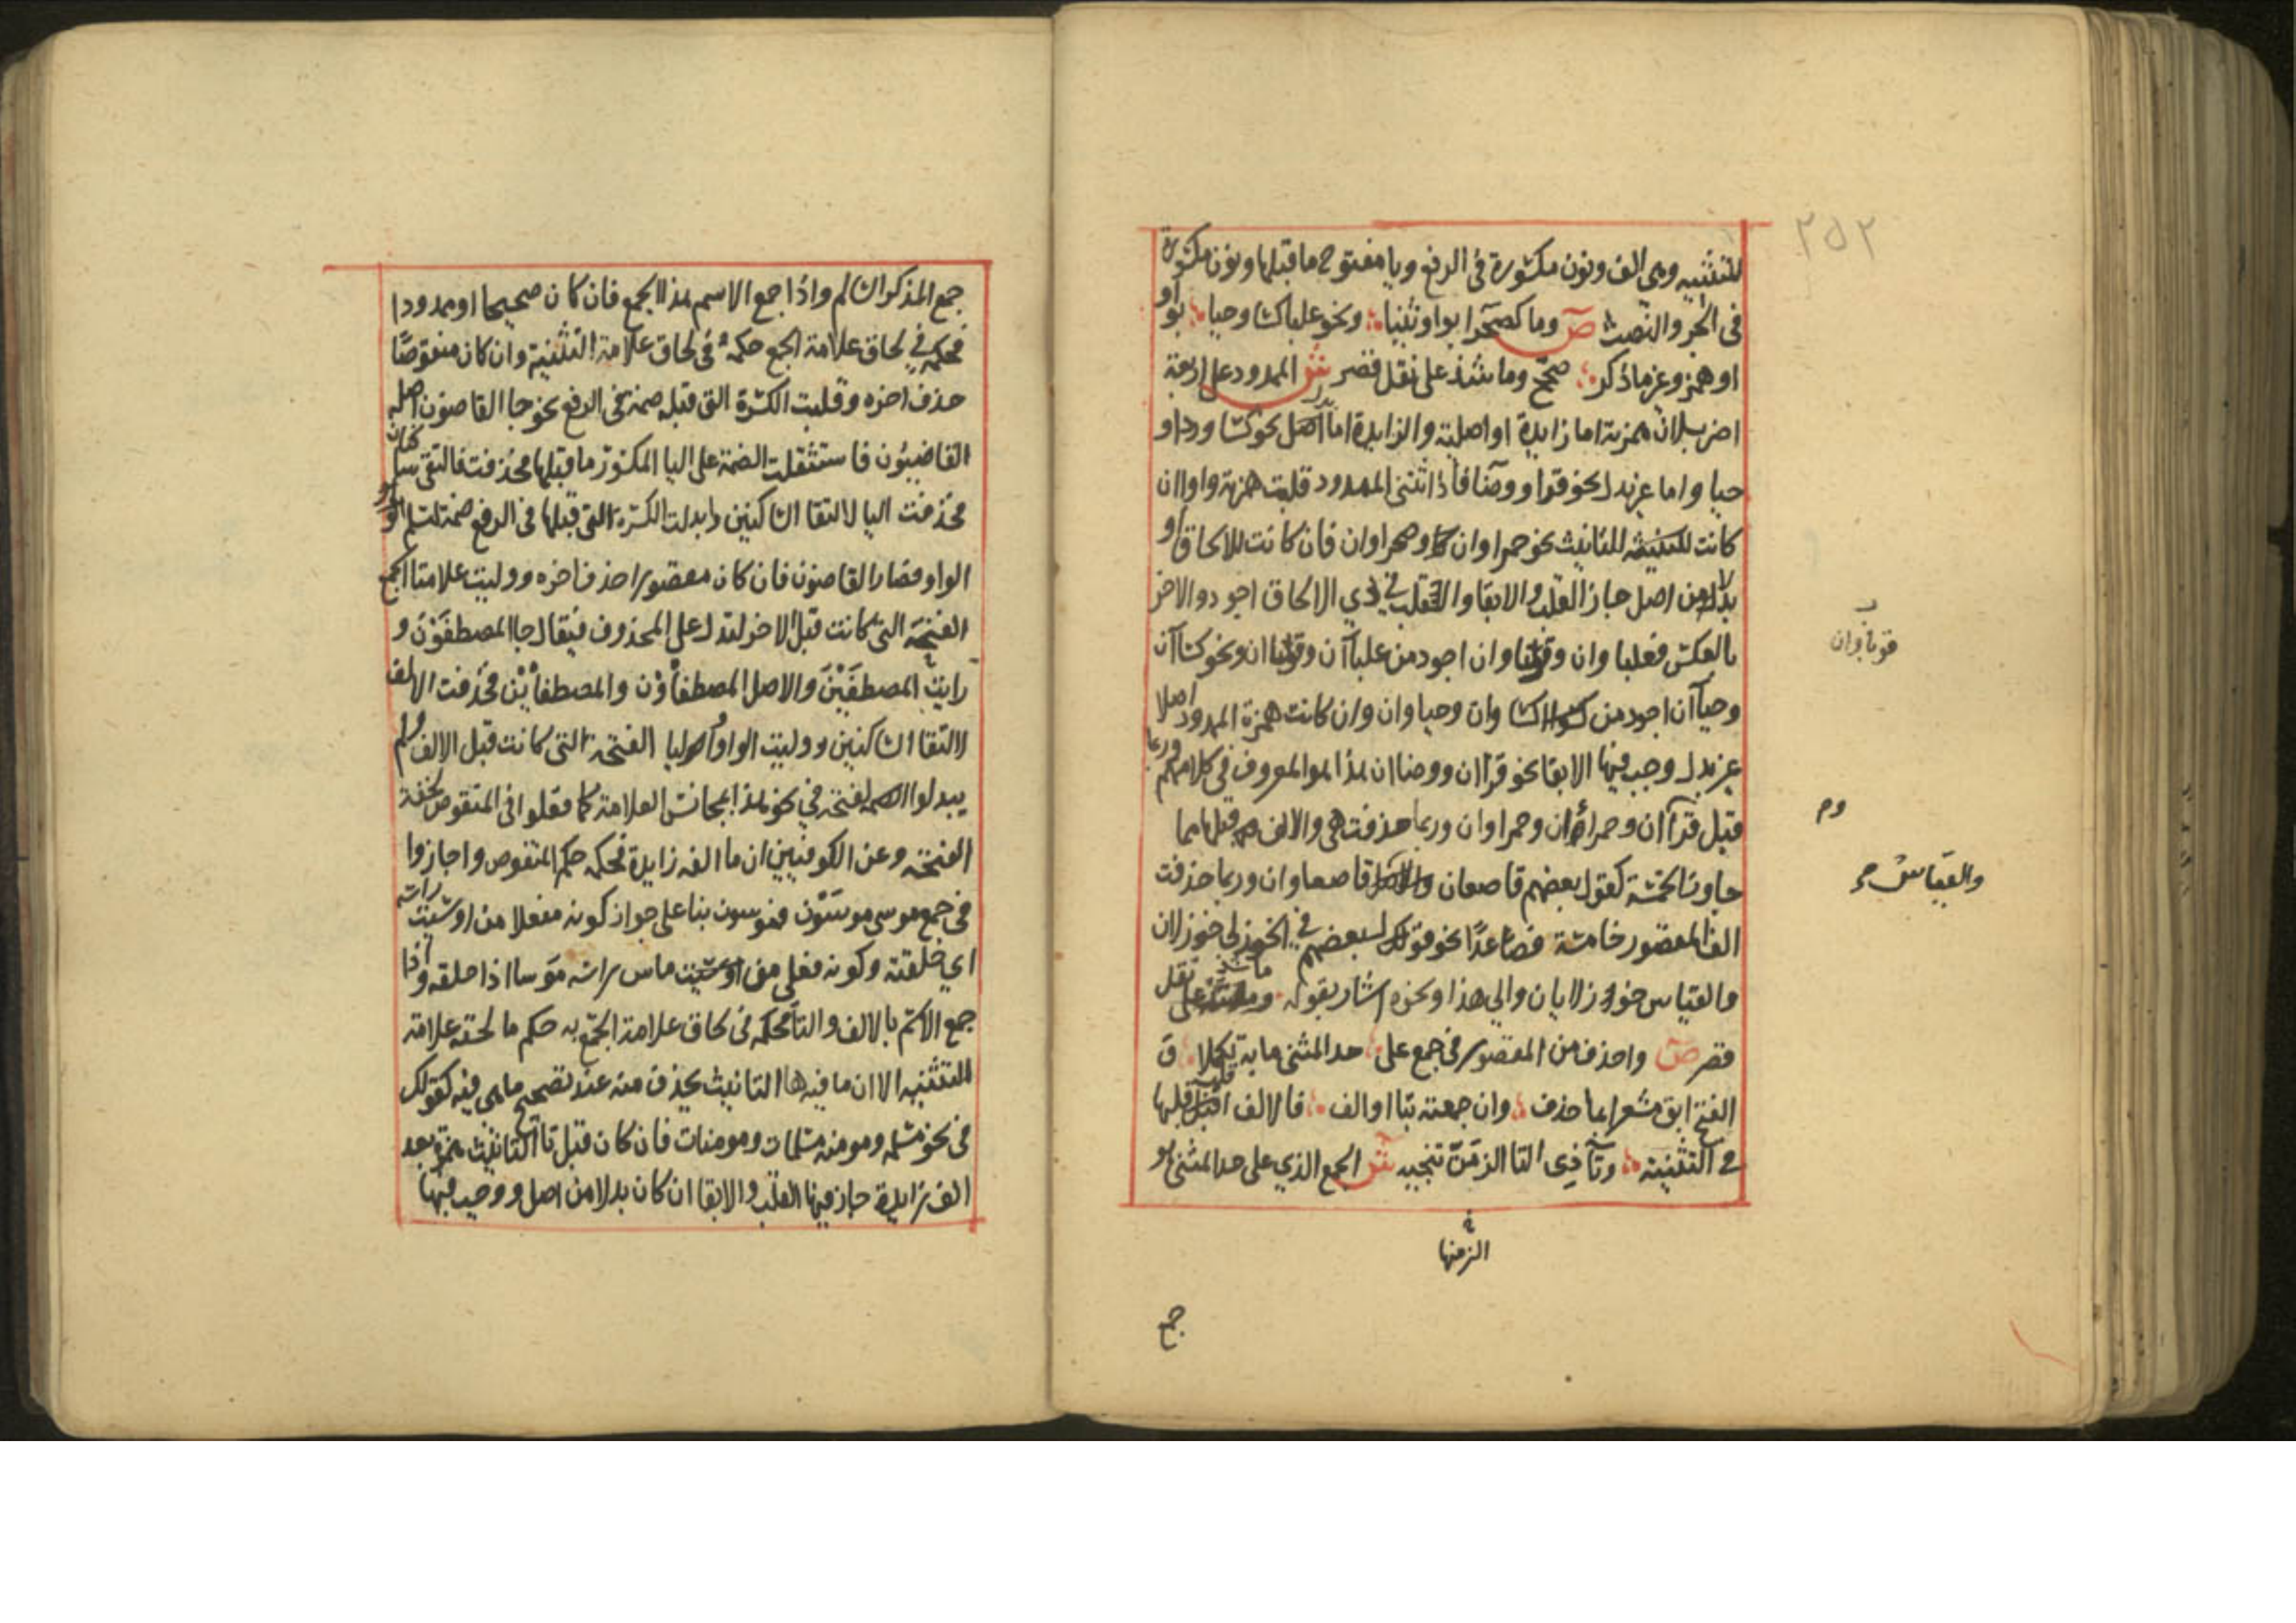 ٢٥٢
للتثنيه وهى الف ونون مكسورة فى الرفع ويا مفتوح ما قبلها ونون مكسورة
فى الجر والنصب ص وما كصحرا بواو ثنيا ونحو علبا كسا وحيا بواو
او همز وغير ما ذكر صحح وما شذ على نقل قصر ش الممدود على اربعة
اضرب لان همزته اما زايدة او اصلية والزايدة اما نحو كسا وردا و
حيا واما غير بدل نحو قرا ووضا فاذا ثنى الممدود قلبت همزته واوا ان
كانت للتانيث نحو حمراوان وصحراوان فان كانت للالحاق او
بدلا من اصل جاز القلب والابقا والقلب في ذي الالحاق اجود والاخر
بالعكس فعلباوان وقوباوان اجود من علباآن وقوباان ونحو كساآن
وحياآن اجود من كساوان وحياوان وان كانت همزة الممدود اصلا
غير بدل وجب فيها الابقا نحو قراان ووضاان هذا هو المعروف في كلامهم وربما
قيل قراآن وحمراأان وحمراوان وربما حذفت هى والالف قبلها مما
جاوز الخمسة كقول بعضهم قاصعان قاصعاوان وربما حذفت
الف المقصور خامسة فصاعدا نحو قولك لبعضهم في الخوزلى خوزلان
والقياس خوزلايان والي هذا ونحوه اشار بقوله وما شذ على نقل
قصر ص واحذف من المقصور فى جمع على حد المثنى ما به تكملا و
الفتح ابق مشعرا بما حذف وان جمعته بتا او الف فالالف اقلب قلبها
في التثنية وتآ ذى التا الزمن تنحيه ش الجمع الذي على حد المثنى هو
قوباوان
وم
والقياس
الزمنها
جمع
جمع المذكر السالم واذا جمع الاسم هذا الجمع فان كان صحيحا او ممدودا
فحكمه في لحاق علامة الجمع حكمه فى لحاق علامة التثنية وان كان منقوصا
حذف اخره وقلبت الكسرة التى قبله ضمة فى الرفع نحو جا القاضون اصله
القاضيون فاستثقلت الضمة على اليا المكسور ما قبلها فحذفت فالتقى ساكنان
فحذفت اليا لالتقا الساكنين وابدلت الكسرة التى قبلها فى الرفع ضمة لتسلم الواو
الواو فصار القاضون فان كان مقصورا حذف اخره ووليت علامتا الجمع
الفتحة التى كانت قبل الاخر لتدل على المحذوف فيقال جا المصطفون و
رايت المصطفين والاصل المصطفاون والمصطفاين فحذفت الالف
لالتقا الساكنين ووليت الواو واليا الفتحة التى كانت قبل الالف ولم
يبدلوا الفتحة في نحو هذا بمجانس العلامة كما فعلوا فى المنقوص لخفة
الفتحة وعن الكوفيين ان ما الفه زايدة فحكمه حكم المنقوص واجازوا
فى جمع موسى موسون وموسون بنا على جواز كونه مفعلا من اوسيت راسه
اي حلقته وكونه فعلى من ماس راسه موسا اذا حلقه واذا
جمع الاسم بالالف والتا فحكمه فى لحاق علامة الجمع به حكم ما لحقه علامة
التثنيه الا ان ما فيه ها التانيث يحذف منه عند تصحيح ما هى فيه كقولك
فى نحو مسلمه ومومنه مسلمات ومومنات فان كان قبل تا التانيث همزة بعد
الف زايدة جاز فيها القلب والابقا ان كان بدلا من اصل ووجب فيها